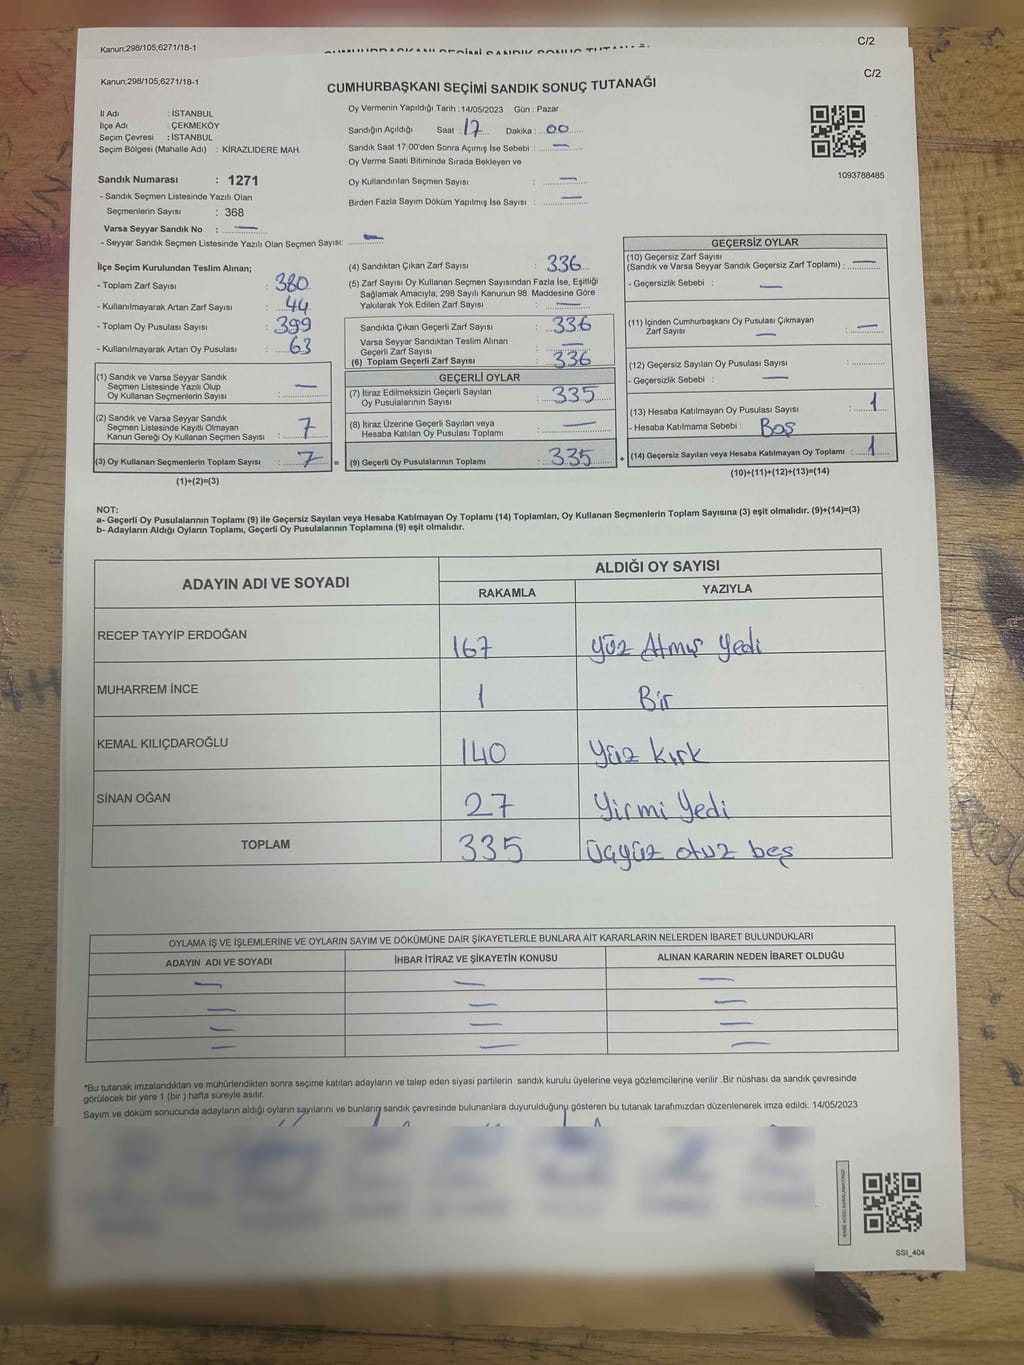 Kanun;298/105,6271/18-1
C/2
Kanun;298/105,6271/18-1
C/2
CUMHURBAŞKANI SEÇİMİ SANDIK SONUÇ TUTANAĞI
İl Adı : İSTANBUL
İlçe Adı : ÇEKMEKÖY
Seçim Çevresi : İSTANBUL
Seçim Bölgesi (Mahalle Adı) : KİRAZLIDERE MAH.
Sandık Numarası : 1271
- Sandık Seçmen Listesinde Yazılı Olan
Seçmenlerin Sayısı : 368
Varsa Seyyar Sandık No : —
- Seyyar Sandık Seçmen Listesinde Yazılı Olan Seçmen Sayısı: —
Oy Vermenin Yapıldığı Tarih : 14/05/2023 Gün : Pazar
Sandığın Açıldığı Saat : 17 Dakika : 00
Sandık Saat 17:00'den Sonra Açımış İse Sebebi : —
Oy Verme Saati Bitiminde Sırada Bekleyen ve
Oy Kullandırılan Seçmen Sayısı : —
Birden Fazla Sayım Döküm Yapılmış İse Sayısı : —
1093788485
İlçe Seçim Kurulundan Teslim Alınan;
- Toplam Zarf Sayısı : 380
- Kullanılmayarak Artan Zarf Sayısı : 44
- Toplam Oy Pusulası Sayısı : 399
- Kullanılmayarak Artan Oy Pusulası : 63
(1) Sandık ve Varsa Seyyar Sandık
Seçmen Listesinde Yazılı Olup
Oy Kullanan Seçmenlerin Sayısı : —
(2) Sandık ve Varsa Seyyar Sandık
Seçmen Listesinde Kayıtlı Olmayan
Kanun Gereği Oy Kullanan Seçmen Sayısı : 7
(3) Oy Kullanan Seçmenlerin Toplam Sayısı : 7 =
(1)+(2)=(3)
(4) Sandıktan Çıkan Zarf Sayısı : 336
(5) Zarf Sayısı Oy Kullanan Seçmen Sayısından Fazla İse, Eşitliği
Sağlamak Amacıyla; 298 Sayılı Kanunun 98. Maddesine Göre
Yakılarak Yok Edilen Zarf Sayısı : —
Sandıkta Çıkan Geçerli Zarf Sayısı : 336
Varsa Seyyar Sandıktan Teslim Alınan
Geçerli Zarf Sayısı : —
(6) Toplam Geçerli Zarf Sayısı : 336
GEÇERLİ OYLAR
(7) İtiraz Edilmeksizin Geçerli Sayılan
Oy Pusulalarının Sayısı : 335
(8) İtiraz Üzerine Geçerli Sayılan veya
Hesaba Katılan Oy Pusulası Toplamı : —
(9) Geçerli Oy Pusulalarının Toplamı : 335 +
GEÇERSİZ OYLAR
(10) Geçersiz Zarf Sayısı
(Sandık ve Varsa Seyyar Sandık Geçersiz Zarf Toplamı) : —
- Geçersizlik Sebebi : —
(11) İçinden Cumhurbaşkanı Oy Pusulası Çıkmayan
Zarf Sayısı — : —
(12) Geçersiz Sayılan Oy Pusulası Sayısı :
- Geçersizlik Sebebi : —
(13) Hesaba Katılmayan Oy Pusulası Sayısı : 1
- Hesaba Katılmama Sebebi : Boş
(14) Geçersiz Sayılan veya Hesaba Katılmayan Oy Toplamı : 1
(10)+(11)+(12)+(13)=(14)
NOT:
a- Geçerli Oy Pusulalarının Toplamı (9) ile Geçersiz Sayılan veya Hesaba Katılmayan Oy Toplamı (14) Toplamları, Oy Kullanan Seçmenlerin Toplam Sayısına (3) eşit olmalıdır. (9)+(14)=(3)
b- Adayların Aldığı Oyların Toplamı, Geçerli Oy Pusulalarının Toplamına (9) eşit olmalıdır.
ADAYIN ADI VE SOYADI ALDIĞI OY SAYISI
RAKAMLA YAZIYLA
RECEP TAYYİP ERDOĞAN 167 Yüz Atmış Yedi
MUHARREM İNCE 1 Bir
KEMAL KILIÇDAROĞLU 140 Yüz kırk
SİNAN OĞAN 27 Yirmi Yedi
TOPLAM 335 Üçyüz otuz beş
OYLAMA İŞ VE İŞLEMLERİNE VE OYLARIN SAYIM VE DÖKÜMÜNE DAİR ŞİKAYETLERLE BUNLARA AİT KARARLARIN NELERDEN İBARET BULUNDUKLARI
ADAYIN ADI VE SOYADI İHBAR İTİRAZ VE ŞİKAYETİN KONUSU ALINAN KARARIN NEDEN İBARET OLDUĞU
— — —
— — —
— — —
— — —
*Bu tutanak imzalandıktan ve mühürlendikten sonra seçime katılan adayların ve talep eden siyasi partilerin sandık kurulu üyelerine veya gözlemcilerine verilir .Bir nüshası da sandık çevresinde
görülecek bir yere 1 (bir ) hafta süreyle asılır.
Sayım ve döküm sonucunda adayların aldığı oyların sayılarını ve bunların sandık çevresinde bulunanlara duyurulduğunu gösteren bu tutanak tarafımızdan düzenlenerek imza edildi. 14/05/2023
KARE KODU KARALAMAYINIZ!
SSI_404